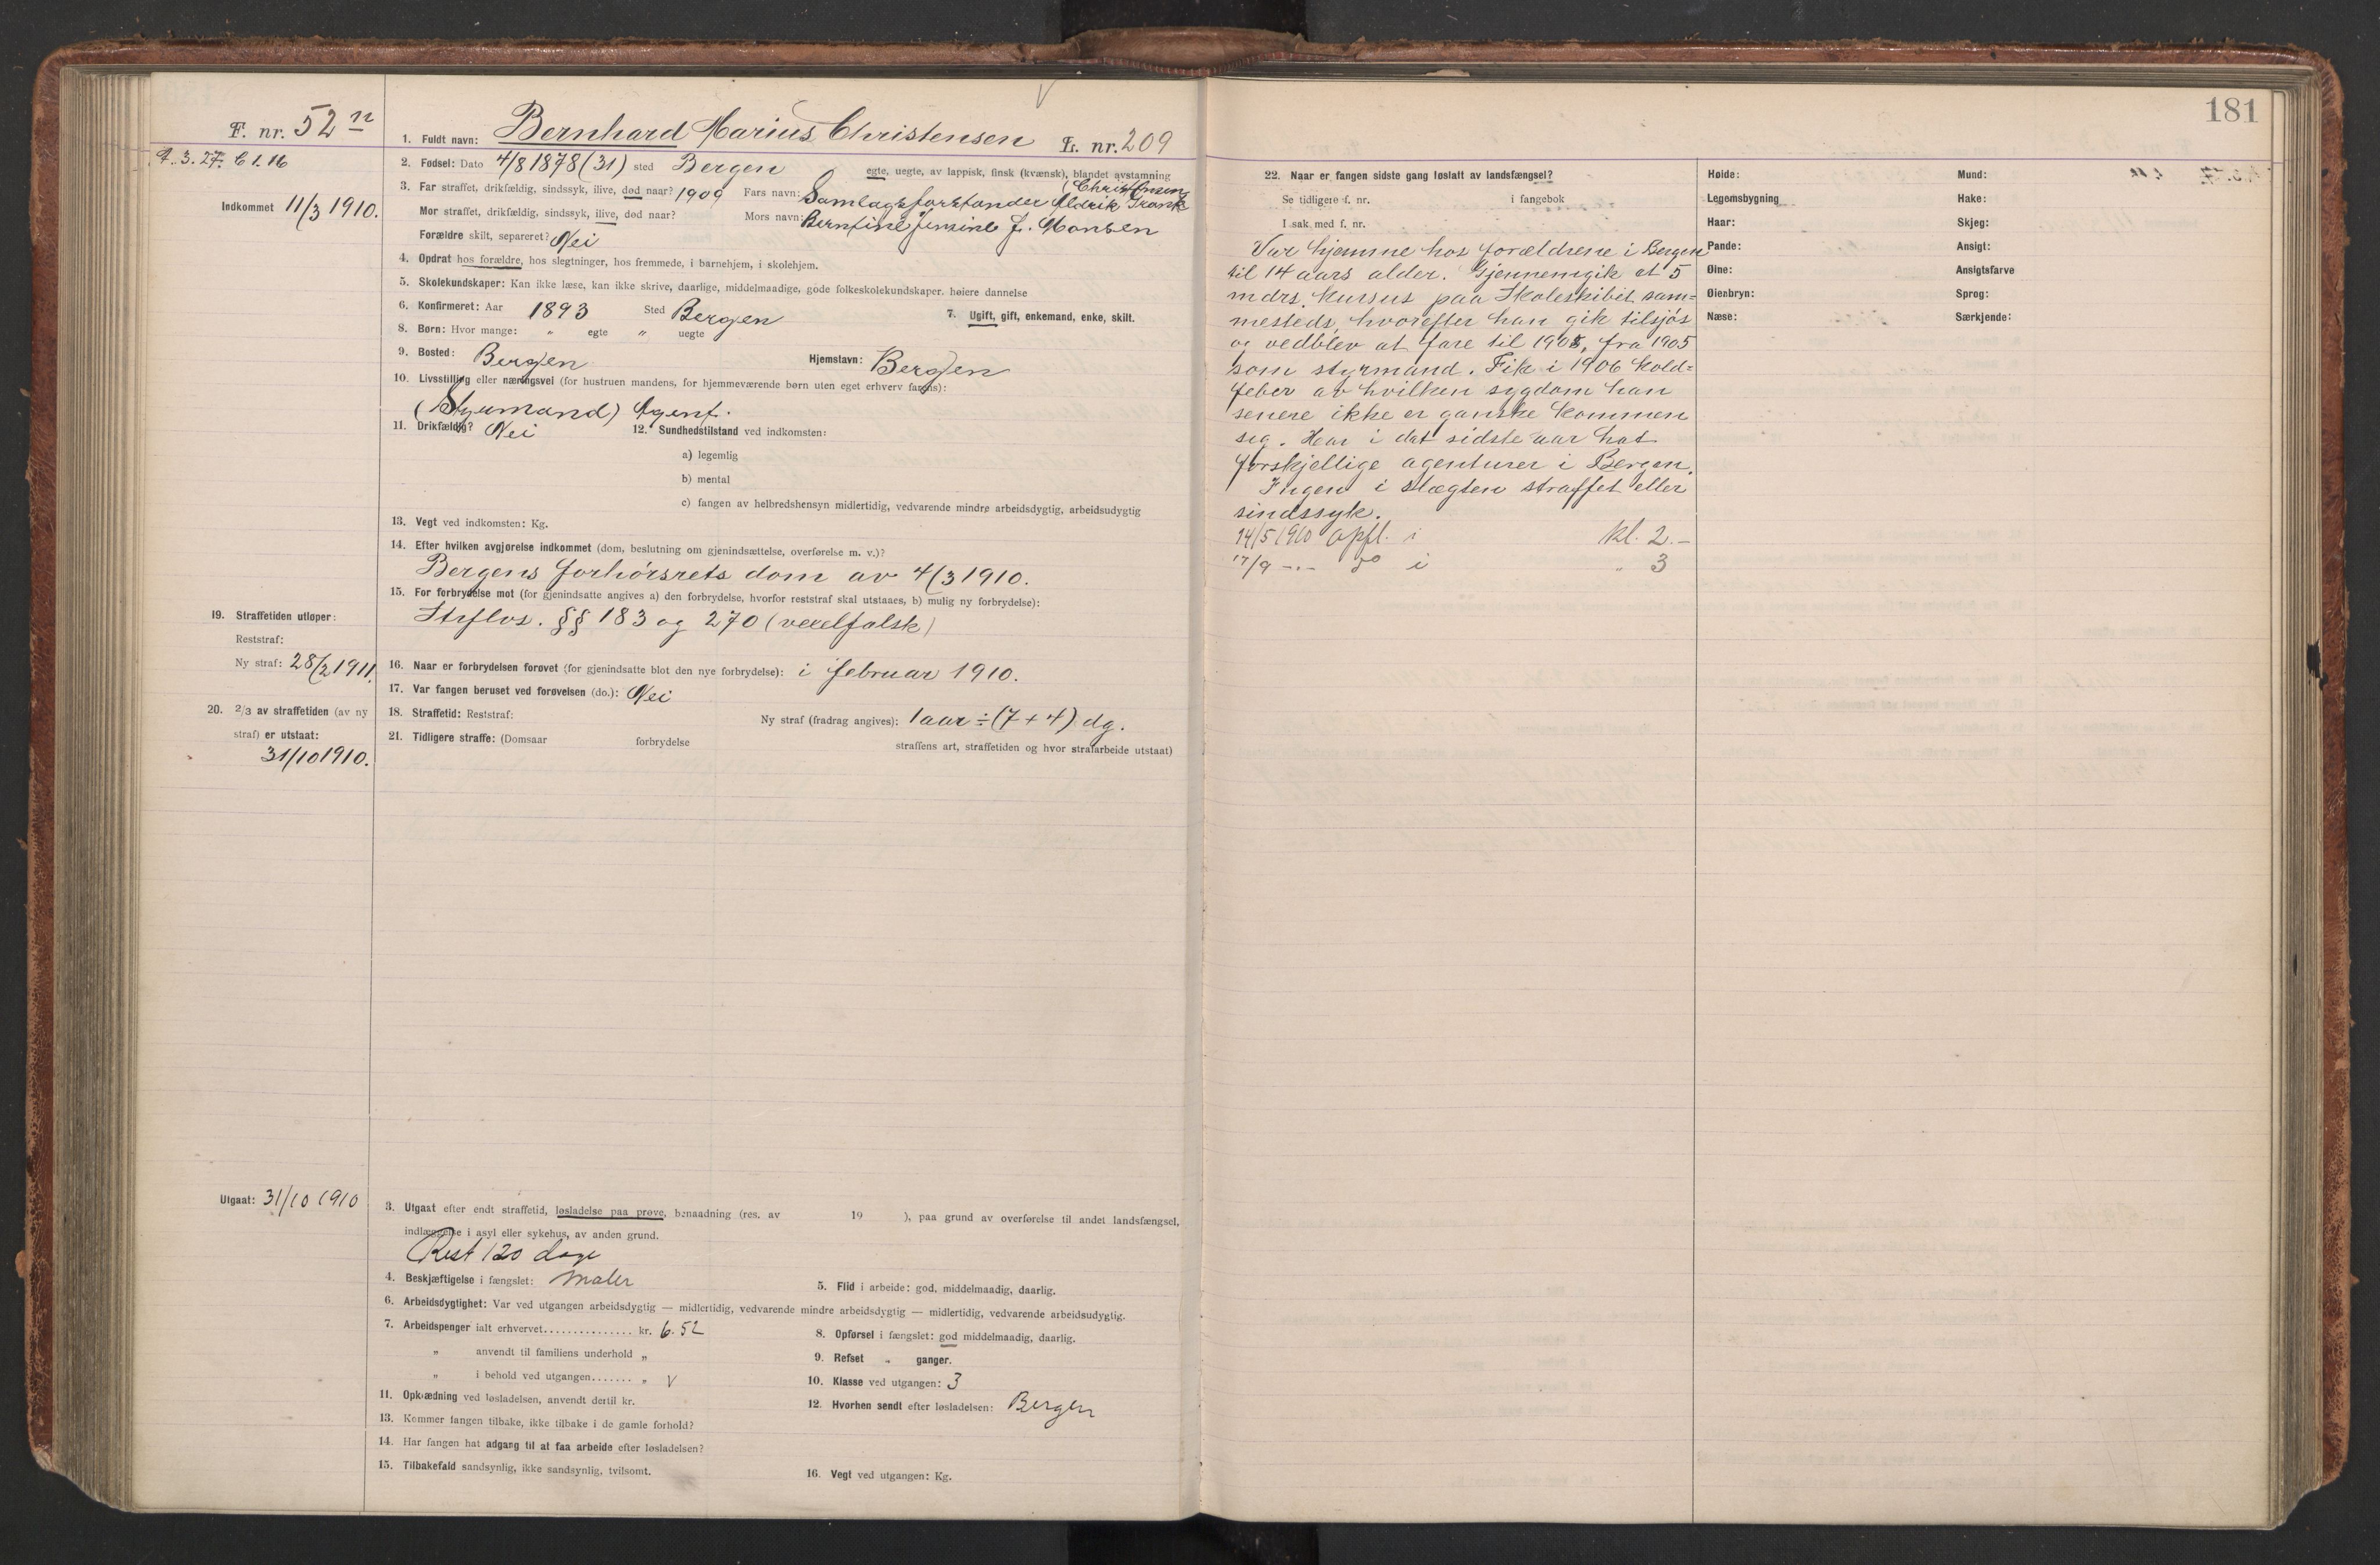 F. nr. 52 n
1. Fuldt navn: Bernhard Marius Christensen L. nr. 209
2. Fødsel: Dato 4/8 1878 (31) sted Bergen egte, uegte, av lappisk, finsk (kvænsk), blandet avstamning
Indkommet 11/3 1910.
3. Far straffet, drikfældig, sindssyk, ilive, død naar? 1909 Fars navn: Samlagsforstander Aldrik Frank Christensen
Mor straffet, drikfældig, sindssyk, ilive, død naar? Mors navn: Berntine Jensine J. Monsen
Forældre skilt, separeret? Nei
4. Opdrat hos forældre, hos slegtninger, hos fremmede, i barnehjem, i skolehjem.
5. Skolekundskaper: Kan ikke læse, kan ikke skrive, daarlige, middelmaadige, gode folkeskolekundskaper, høiere dannelse
6. Konfirmeret: Aar 1893 Sted Bergen 7. Ugift, gift, enkemand, enke, skilt.
8. Børn: Hvor mange: " egte " uegte
9. Bosted: Bergen Hjemstavn: Bergen
10. Livsstilling eller næringsvei (for hustruen mandens, for hjemmeværende børn uten eget erhverv farens):
(Styrmand) Agent.
11. Drikfældig? Nei 12. Sundhedstilstand ved indkomsten:
a) legemlig
b) mental
c) fangen av helbredshensyn midlertidig, vedvarende mindre arbeidsdygtig, arbeidsudygtig
13. Vegt ved indkomsten: Kg.
14. Efter hvilken avgjørelse indkommet (dom, beslutning om gjenindsættelse, overførelse m. v.)?
Bergens forhørsrets dom av 4/3 1910.
15. For forbrydelse mot (for gjenindsatte angives a) den forbrydelse, hvorfor reststraf skal utstaaes, b) mulig ny forbrydelse):
Strflov. §§ 183 og 270 (vexelfalsk)
19. Straffetiden utløper:
Reststraf:
Ny straf: 28/2 1911.
16. Naar er forbrydelsen forøvet (for gjenindsatte blot den nye forbrydelse): i februar 1910.
17. Var fangen beruset ved forøvelsen (do.): Nei
20. 2/3 av straffetiden (av ny
straf) er utstaat:
31/10 1910.
18. Straffetid: Reststraf: Ny straf (fradrag angives): 1 aar ÷ (7 + 4) dg.
21. Tidligere straffe: (Domsaar forbrydelse straffens art, straffetiden og hvor strafarbeide utstaat)
Utgaat: 31/10 1910
3. Utgaat efter endt straffetid, løsladelse paa prøve, benaadning (res. av 19 ), paa grund av overførelse til andet landsfængsel,
indlæggelse i asyl eller sykehus, av anden grund.
Rest 120 dage
4. Beskjæftigelse i fængslet: Maler 5. Flid i arbeide: god, middelmaadig, daarlig.
6. Arbeidsdygtighet: Var ved utgangen arbeidsdygtig — midlertidig, vedvarende mindre arbeidsdygtig — midlertidig, vedvarende arbeidsudygtig.
7. Arbeidspenger ialt erhvervet............... kr. 6.52 8. Opførsel i fængslet: god middelmaadig, daarlig.
" anvendt til familiens underhold " 9. Refset " ganger.
" i behold ved utgangen....... " 10. Klasse ved utgangen: 3
11. Opklædning ved løsladelsen, anvendt dertil kr. 12. Hvorhen sendt efter løsladelsen: Bergen
13. Kommer fangen tilbake, ikke tilbake i de gamle forhold?
14. Har fangen hat adgang til at faa arbeide efter løsladelsen?
15. Tilbakefald sandsynlig, ikke sandsynlig, tvilsomt. 16. Vegt ved utgangen: Kg.
181
22. Naar er fangen sidste gang løslatt av landsfængsel?
Se tidligere f. nr. i fangebok
I sak med f. nr.
Var hjemme hos forældrene i Bergen
til 14 aars alder. Gjennemgik et 5
mdrs. kursus paa Skoleskibet sam=
mesteds, hvorefter han gik tilsjøs
og vedblev at fare til 1908, fra 1905
som styrmand. Fik i 1906 kold=
feber av hvilken sygdom han
senere ikke er ganske kommen
seg. Har i det sidste aar hat
forskjellige agenturer i Bergen.
Ingen i slægten straffet eller
sindssyk.
14/5 1910 opfl. i kl. 2.-
17/9 -.- do i " 3
Høide: Mund:
Legemsbygning Hake:
Haar: Skjeg:
Pande: Ansigt:
Øine: Ansigtsfarve
Øienbryn: Sprog:
Næse: Særkjende: